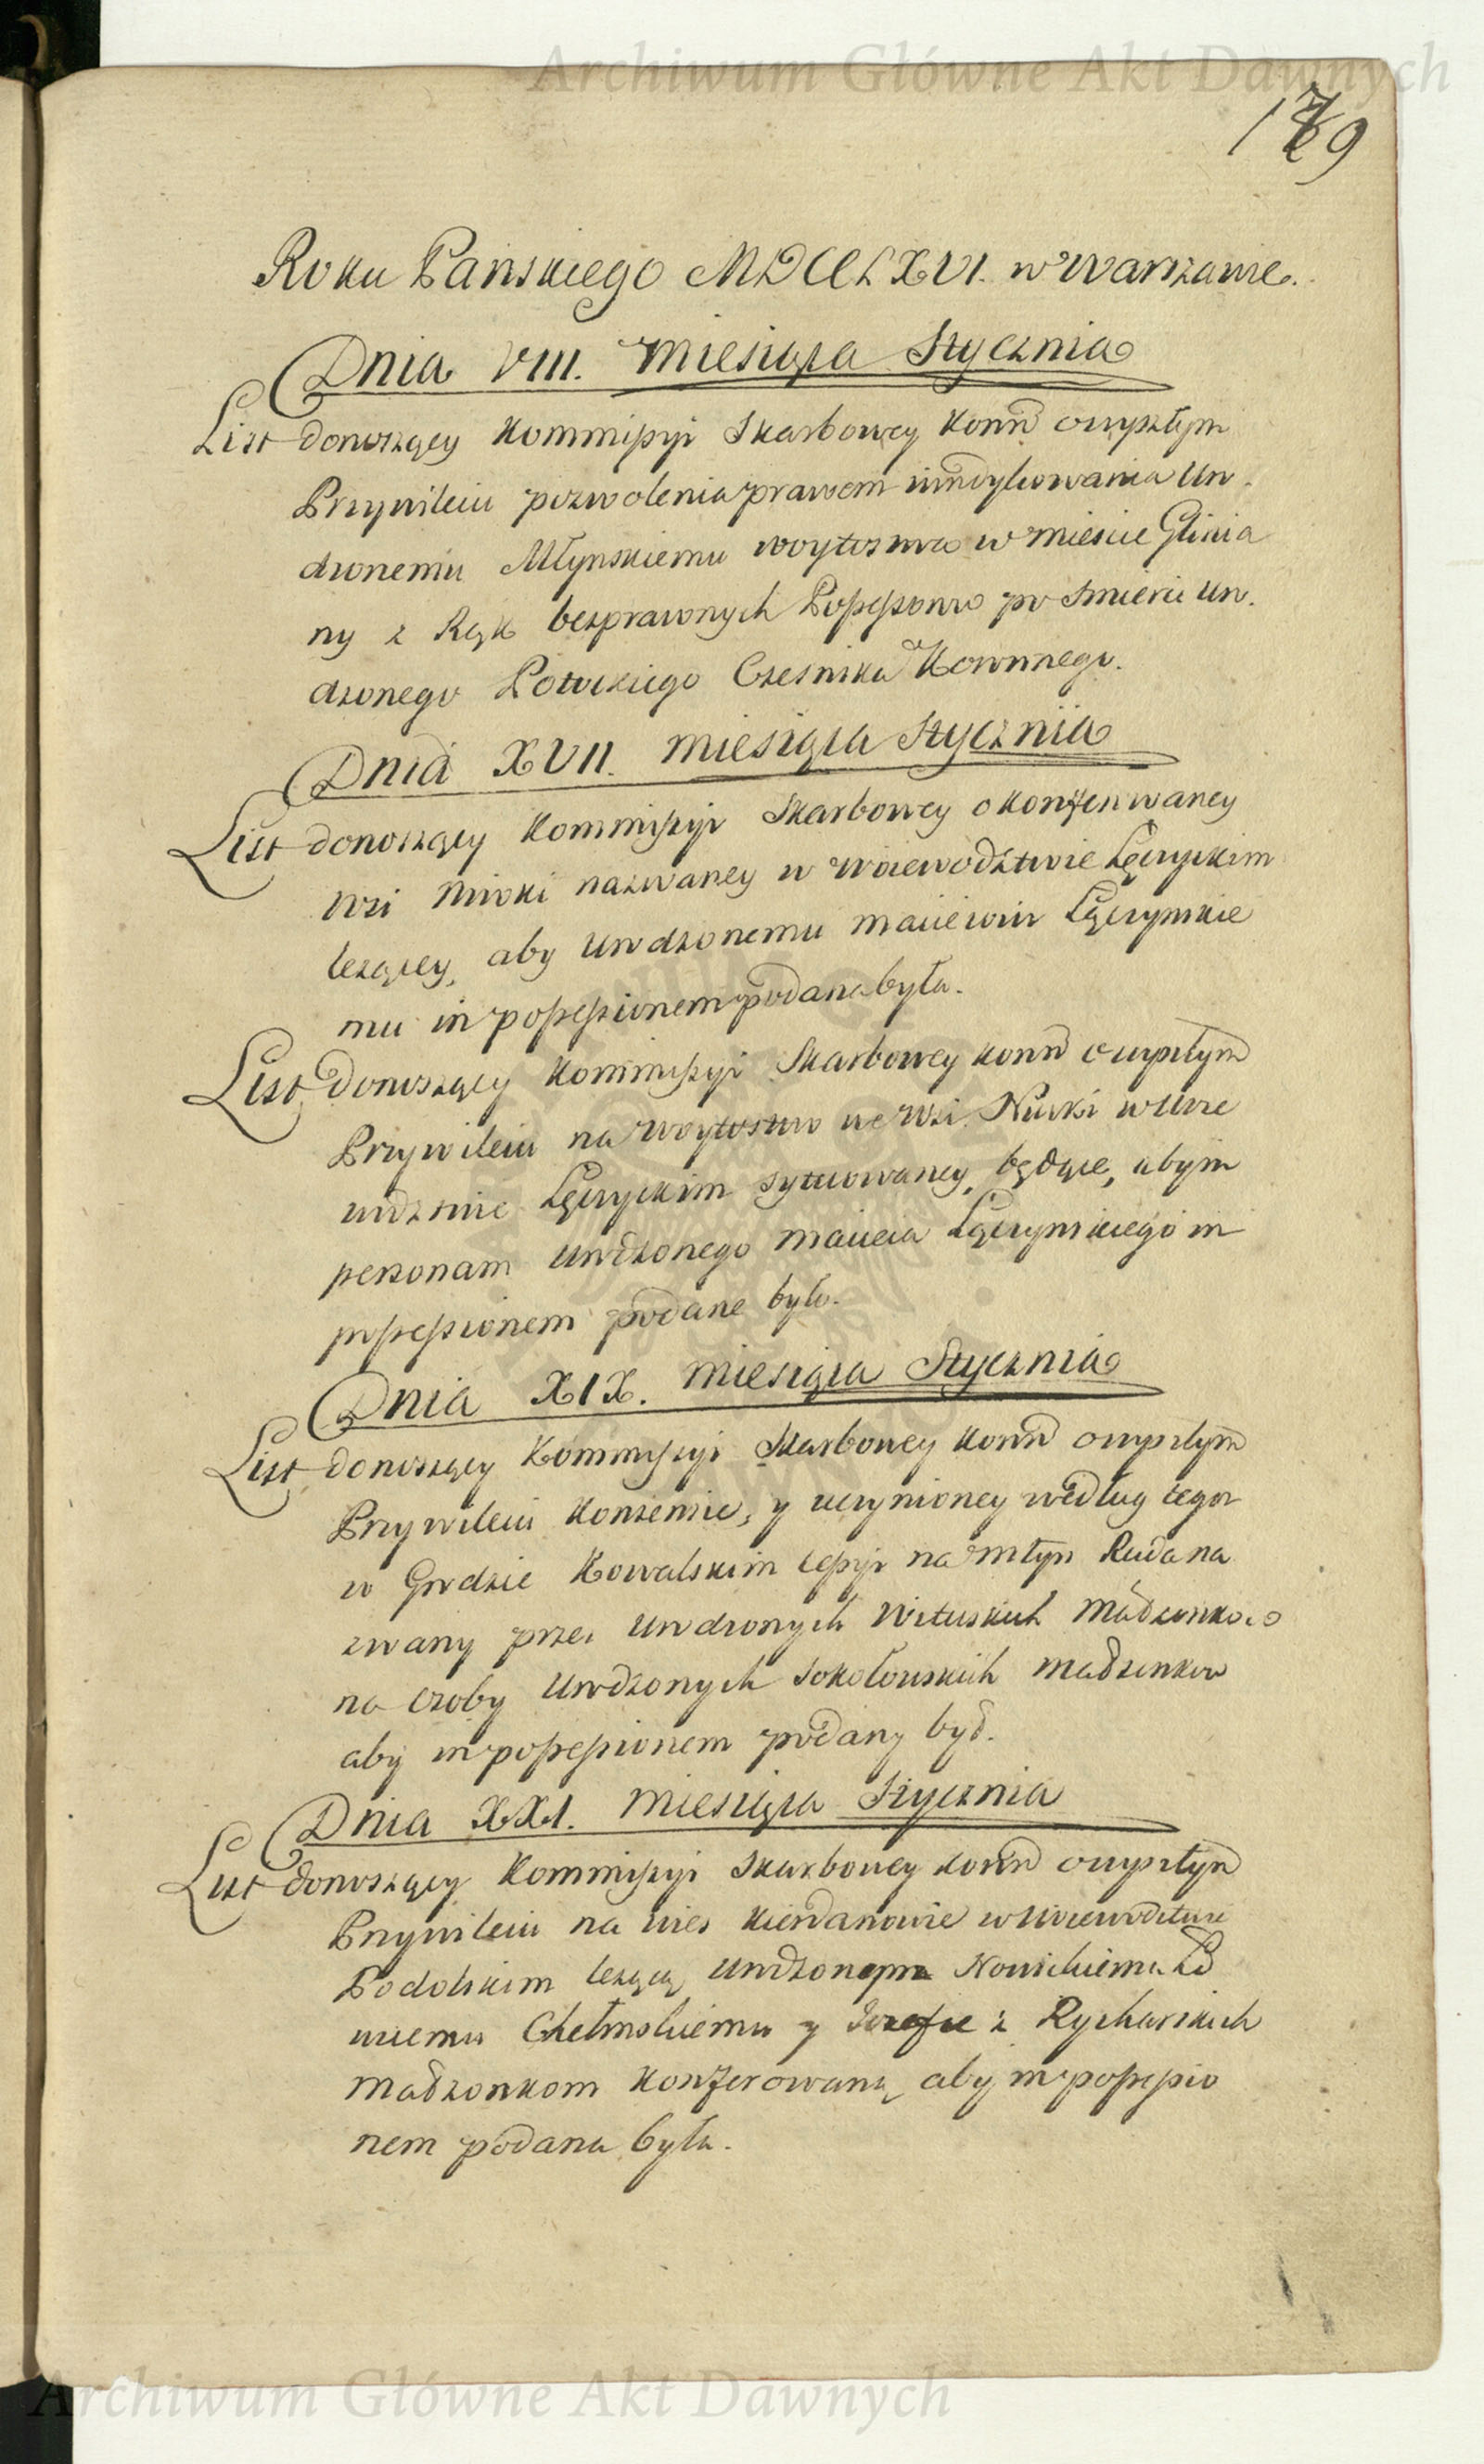 Archiwum Główne Akt Dawnych
179
Roku Pańskiego MDCCLXVI. w Warszawie.
Dnia VIII. Miesiąca Stycznia
List donoszący Kommissyi Skarbowey Konn̄ o wyszłym
Przywileiu pozwolenia prawem windykowania Uro.
dzonemu Młynskiemu woytostwa w mieście Glinia
ny z Rąk bezprawnych Possessorow po Smierci Uro.
dzonego Potockiego Cześnika Koronnego.
Dnia XVII. Miesiąca Stycznia
List donoszący Kommissyi Skarbowey o konferowaney
wsi nazwaney w Woiewodztwie Łęczyckim
leżącey, aby Urodzonemu Maciewiu Łączynskie
mu in possessionem podana była.
List donoszący Kommissyi Skarbowey Konn̄ o wyszłym
Przywileiu na Woytostwo we Wsi w Woie
wodztwie Łęczyckim sytuowaney, będące, aby in
personam Urodzonego Macieia Łączynskiego in
possessionem podane było.
Dnia XIX. Miesiąca Stycznia
List donoszący Kommissyi Skarbowey Konn̄ o wyszłym
Przywileiu Konsensie, y uczynioney według tegoż
w Grodzie Kowalskim cessyi na młyn Ruda na
zwany przez Urodzonych Wituskich Małżonkow
na osoby Urodzonych Sokołowskich Małżonkow
aby in possessionem podany był.
Dnia XXI. Miesiąca Stycznia
List donoszący Kommissyi Skarbowey Konn̄ o wyszłym
Przywileiu na wieś Kierdanowie w Woiewodztwie
Podolskim leżącą Urodzonym Nowickiemu Ło
wczemu Chełmskiemu y Jozefie z Rycharskich
Małżonkom konferowaną aby in possessio
nem podana była.
Archiwum Główne Akt Dawnych